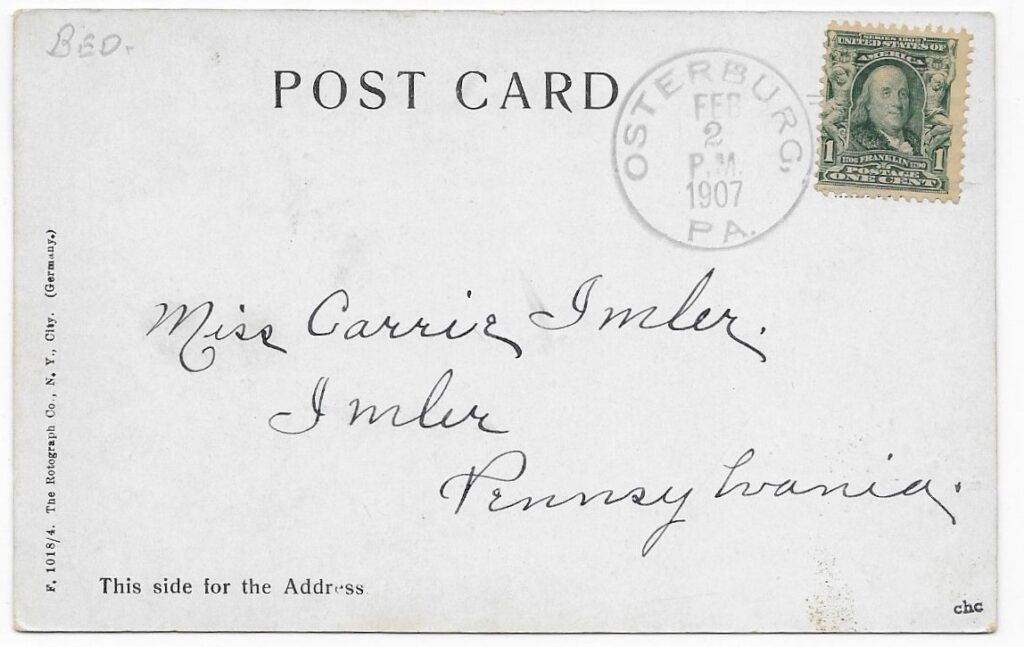 BED.
POST CARD
OSTERBURG,
FEB
2
P.M.
1907
PA.
SERIES 1902
UNITED STATES OF
AMERICA
1 1
1706 FRANKLIN 1790
POSTAGE
ONE CENT
Miss Carrie Imler.
Imler
Pennsylvania.
F. 1018/4. The Rotograph Co., N. Y., City. (Germany.)
This side for the Address
chc